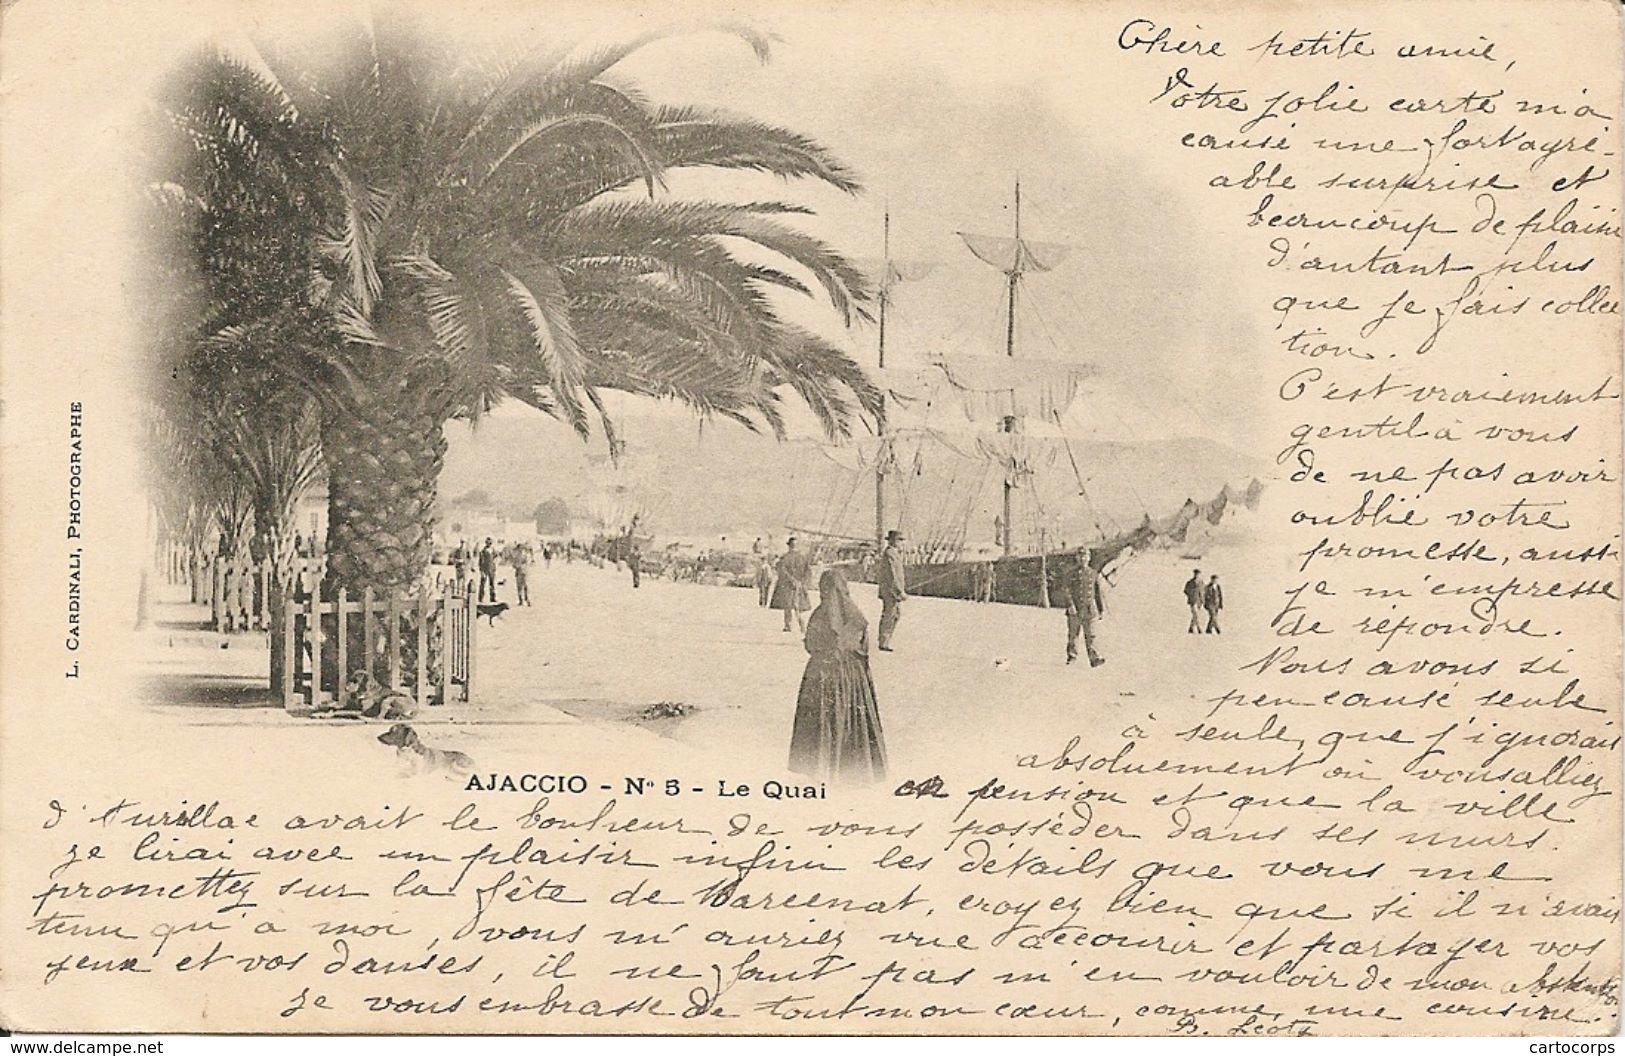 Chère petite amie,
Votre jolie carte m'a
causé une fort agré-
able surprise et
beaucoup de plaisir
d'autant plus
que je fais collec
tion.
C'est vraiement
gentil à vous
de ne pas avoir
oublié votre
promesse, aussi
je m'empresse
de répondre.
Nous avons si
peu causé seule
à seule, que j'ignorais
absoluement où vous alliez
L. CARDINALI, PHOTOGRAPHE
AJACCIO - No 5 - Le Quai
en pension et que la ville
d'Aurillac avait le bonheur de vous posséder dans ses murs.
Je lirai avec un plaisir infini les détails que vous me
promettez sur la fête de Marcenat, croyez bien que si il n'avait
tenu qu'à moi, vous m'auriez vue accourir et partager vos
jeux et vos danses, il ne faut pas m'en vouloir de mon
Je vous embrasse de tout mon cœur, comme une cousine.
B.
cartocorps